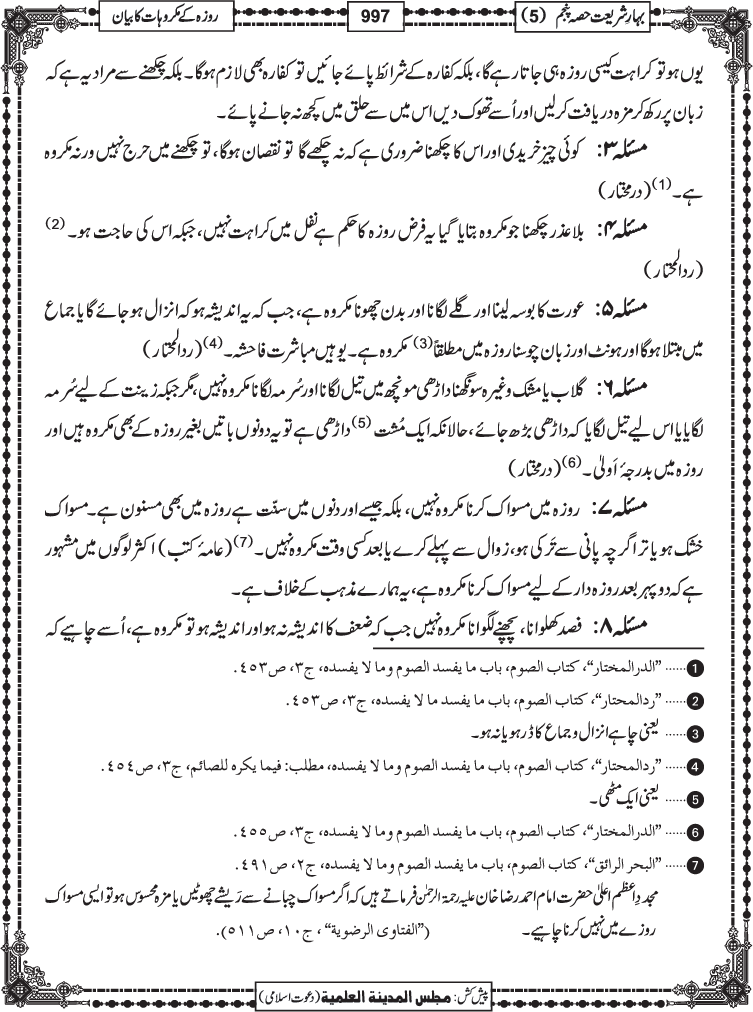 بہارِ شریعت حصہ پنجم (5)
997
روزہ کے مکروہات کا بیان
یوں ہو تو کراہت کیسی روزہ ہی جاتا رہے گا، بلکہ کفارہ کے شرائط پائے جائیں تو کفارہ بھی لازم ہوگا۔ بلکہ چکھنے سے مراد یہ ہے کہ
زبان پر رکھ کر مزہ دریافت کرلیں اور اُسے تھوک دیں اس میں سے حلق میں کچھ نہ جانے پائے۔
مسئلہ ۳: کوئی چیز خریدی اور اس کا چکھنا ضروری ہے کہ نہ چکھے گا تو نقصان ہوگا، تو چکھنے میں حرج نہیں ورنہ مکروہ
ہے۔(1) (درمختار)
مسئلہ ۴: بلا عذر چکھنا جو مکروہ بتایا گیا یہ فرض روزہ کا حکم ہے نفل میں کراہت نہیں، جبکہ اس کی حاجت ہو۔(2)
(ردالمحتار)
مسئلہ ۵: عورت کا بوسہ لینا اور گلے لگانا اور بدن چھونا مکروہ ہے، جب کہ یہ اندیشہ ہو کہ انزال ہو جائے گا یا جماع
میں مبتلا ہوگا اور ہونٹ اور زبان چوسنا روزہ میں مطلقاً(3) مکروہ ہے۔ یوہیں مباشرت فاحشہ۔(4) (ردالمحتار)
مسئلہ ۶: گلاب یا مشک وغیرہ سونگھنا داڑھی مونچھ میں تیل لگانا اور سُرمہ لگانا مکروہ نہیں، مگر جبکہ زینت کے لیے سُرمہ
لگایا یا اس لیے تیل لگایا کہ داڑھی بڑھ جائے، حالانکہ ایک مُشت(5) داڑھی ہے تو یہ دونوں باتیں بغیر روزہ کے بھی مکروہ ہیں اور
روزہ میں بدرجۂ اَولیٰ۔(6) (درمختار)
مسئلہ ۷: روزہ میں مسواک کرنا مکروہ نہیں، بلکہ جیسے اور دنوں میں سنّت ہے روزہ میں بھی مسنون ہے۔ مسواک
خشک ہو یا تر اگرچہ پانی سے تَر کی ہو، زوال سے پہلے کرے یا بعد کسی وقت مکروہ نہیں۔(7) (عامۂ کتب) اکثر لوگوں میں مشہور
ہے کہ دوپہر بعد روزہ دار کے لیے مسواک کرنا مکروہ ہے، یہ ہمارے مذہب کے خلاف ہے۔
مسئلہ ۸: فصد کھلوانا، پچھنے لگوانا مکروہ نہیں جب کہ ضعف کا اندیشہ نہ ہو اور اندیشہ ہو تو مکروہ ہے، اُسے چاہیے کہ
1 ...... ”الدرالمختار“، کتاب الصوم، باب ما یفسد الصوم وما لا یفسدہ، ج۳، ص۴۵۳.
2 ...... ”ردالمحتار“، کتاب الصوم، باب ما یفسد الصوم وما لا یفسدہ، ج۳، ص۴۵۳.
3 ...... یعنی چاہے انزال و جماع کا ڈر ہو یا نہ ہو۔
4 ...... ”ردالمحتار“، کتاب الصوم، باب ما یفسد الصوم وما لا یفسدہ، مطلب: فیما یکرہ للصائم، ج۳، ص۴۵۴.
5 ...... یعنی ایک مٹھی۔
6 ...... ”الدرالمختار“، کتاب الصوم، باب ما یفسد الصوم وما لا یفسدہ، ج۳، ص۴۵۵.
7 ...... ”البحر الرائق“، کتاب الصوم، باب ما یفسد الصوم وما لا یفسدہ، ج۲، ص۴۹۱.
مجددِ اعظم اعلیٰ حضرت امام احمد رضا خان علیہ رحمۃ الرحمٰن فرماتے ہیں کہ اگر مسواک چبانے سے رَیشے چھوٹیں یا مزہ محسوس ہو تو ایسی مسواک
روزے میں نہیں کرنا چاہیے۔ (”الفتاوی الرضویة“، ج۱۰، ص۵۱۱).
پیش کش: مجلس المدینة العلمیة (دعوت اسلامی)